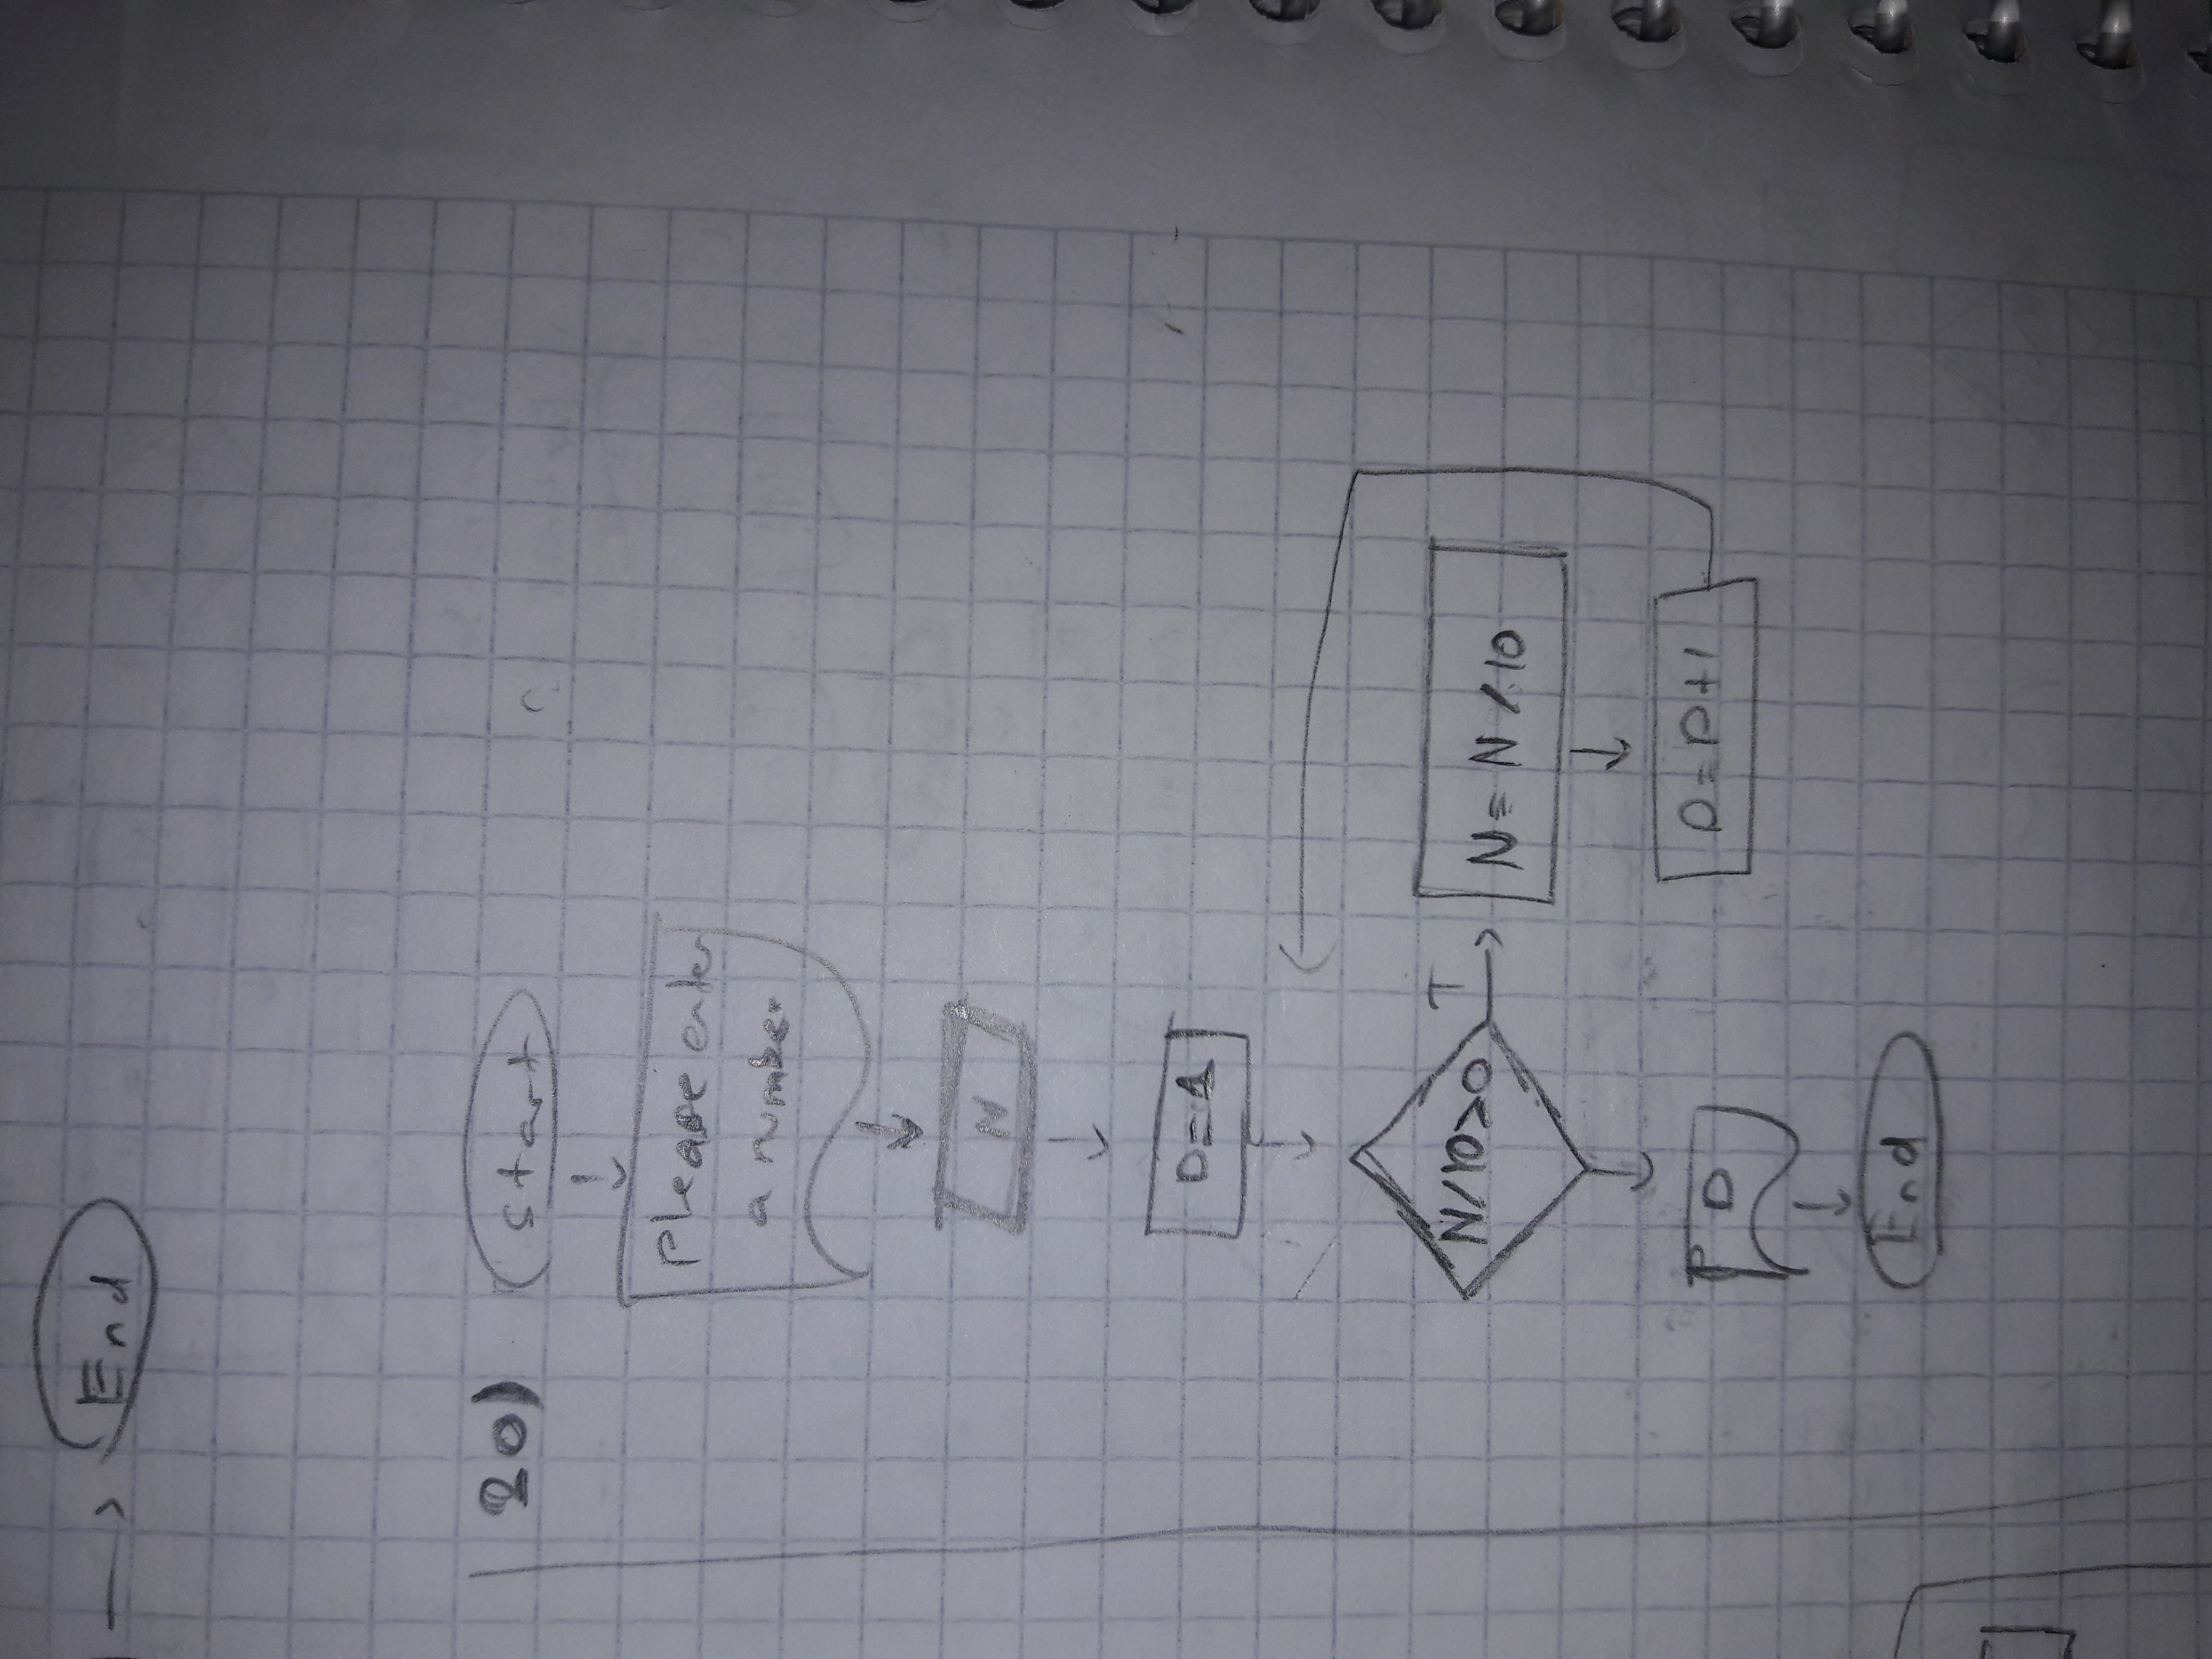 End
20)
Start
Please enter
a number
N
D=1
N/10>0
T
N=N/10
D=D+1
D
End